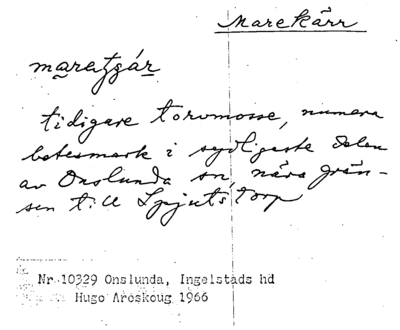 Marekärr
maratjär
tidigare torvmosse, numera
betesmark i sydligaste delen
av Onslunda sn, nära grän-
sen till Spjutstorp
Nr 10329 Onslunda, Ingelstads hd
Hugo Areskoug 1966